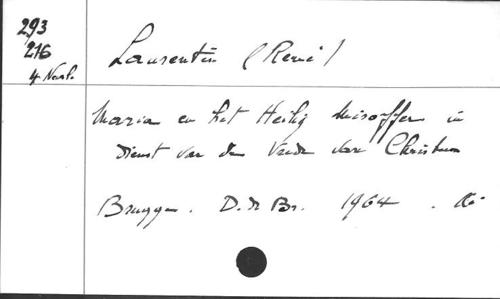 293
216
4 Nev.
Laurentin (René)
Maria en het Heilig Misoffer in
dienst van de Vrede van Christus
Brugge. D.d Br. 1964.